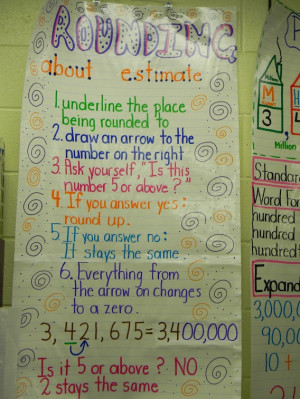 ROUNDING
about estimate
1. underline the place
being rounded to
2. draw an arrow to the
number on the right
3. Ask yourself, "Is this
number 5 or above?"
4. If you answer yes:
round up.
5. If you answer no:
It stays the same.
6. Everything from
the arrow on changes
to a zero.
3,421,675=3,400,000
Is it 5 or above? NO
2 stays the same
M
3
Million
Standar
Word For
hundred
hundred
hundredt
Expand
3,000,0
90,00
10 +